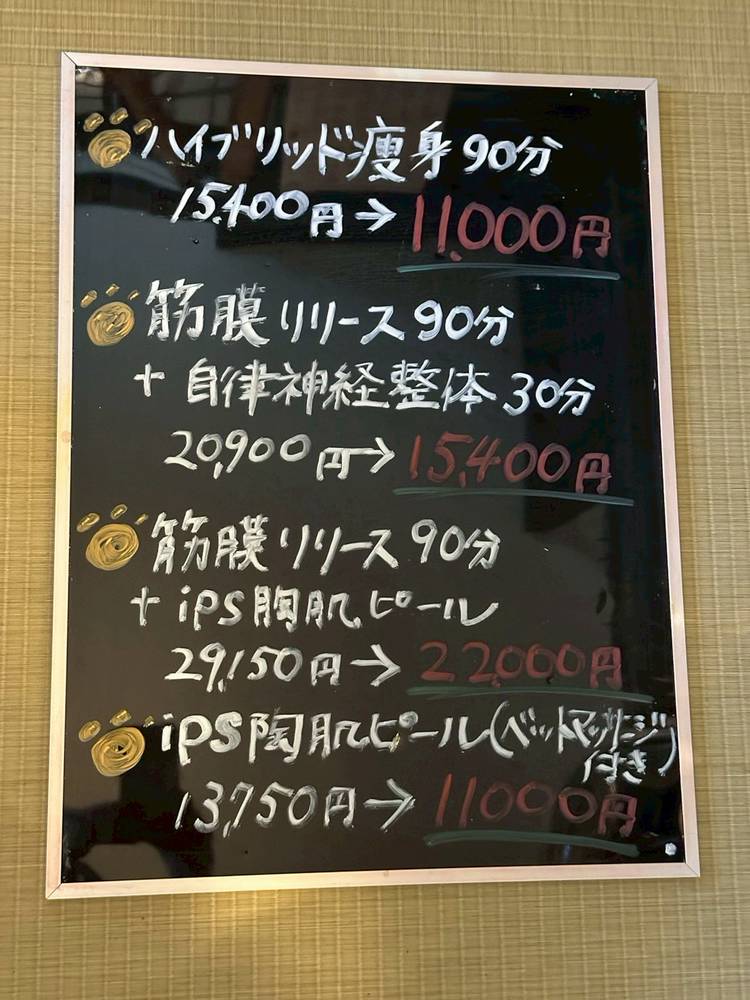 ハイブリッド痩身 90分
15,400円→11,000円
筋膜リリース 90分
+ 自律神経整体 30分
20,900円→15,400円
筋膜リリース 90分
+ ips陶肌ピール
29,150円→22,000円
ips陶肌ピール(ベットマッサージ付き)
13,750円→11000円